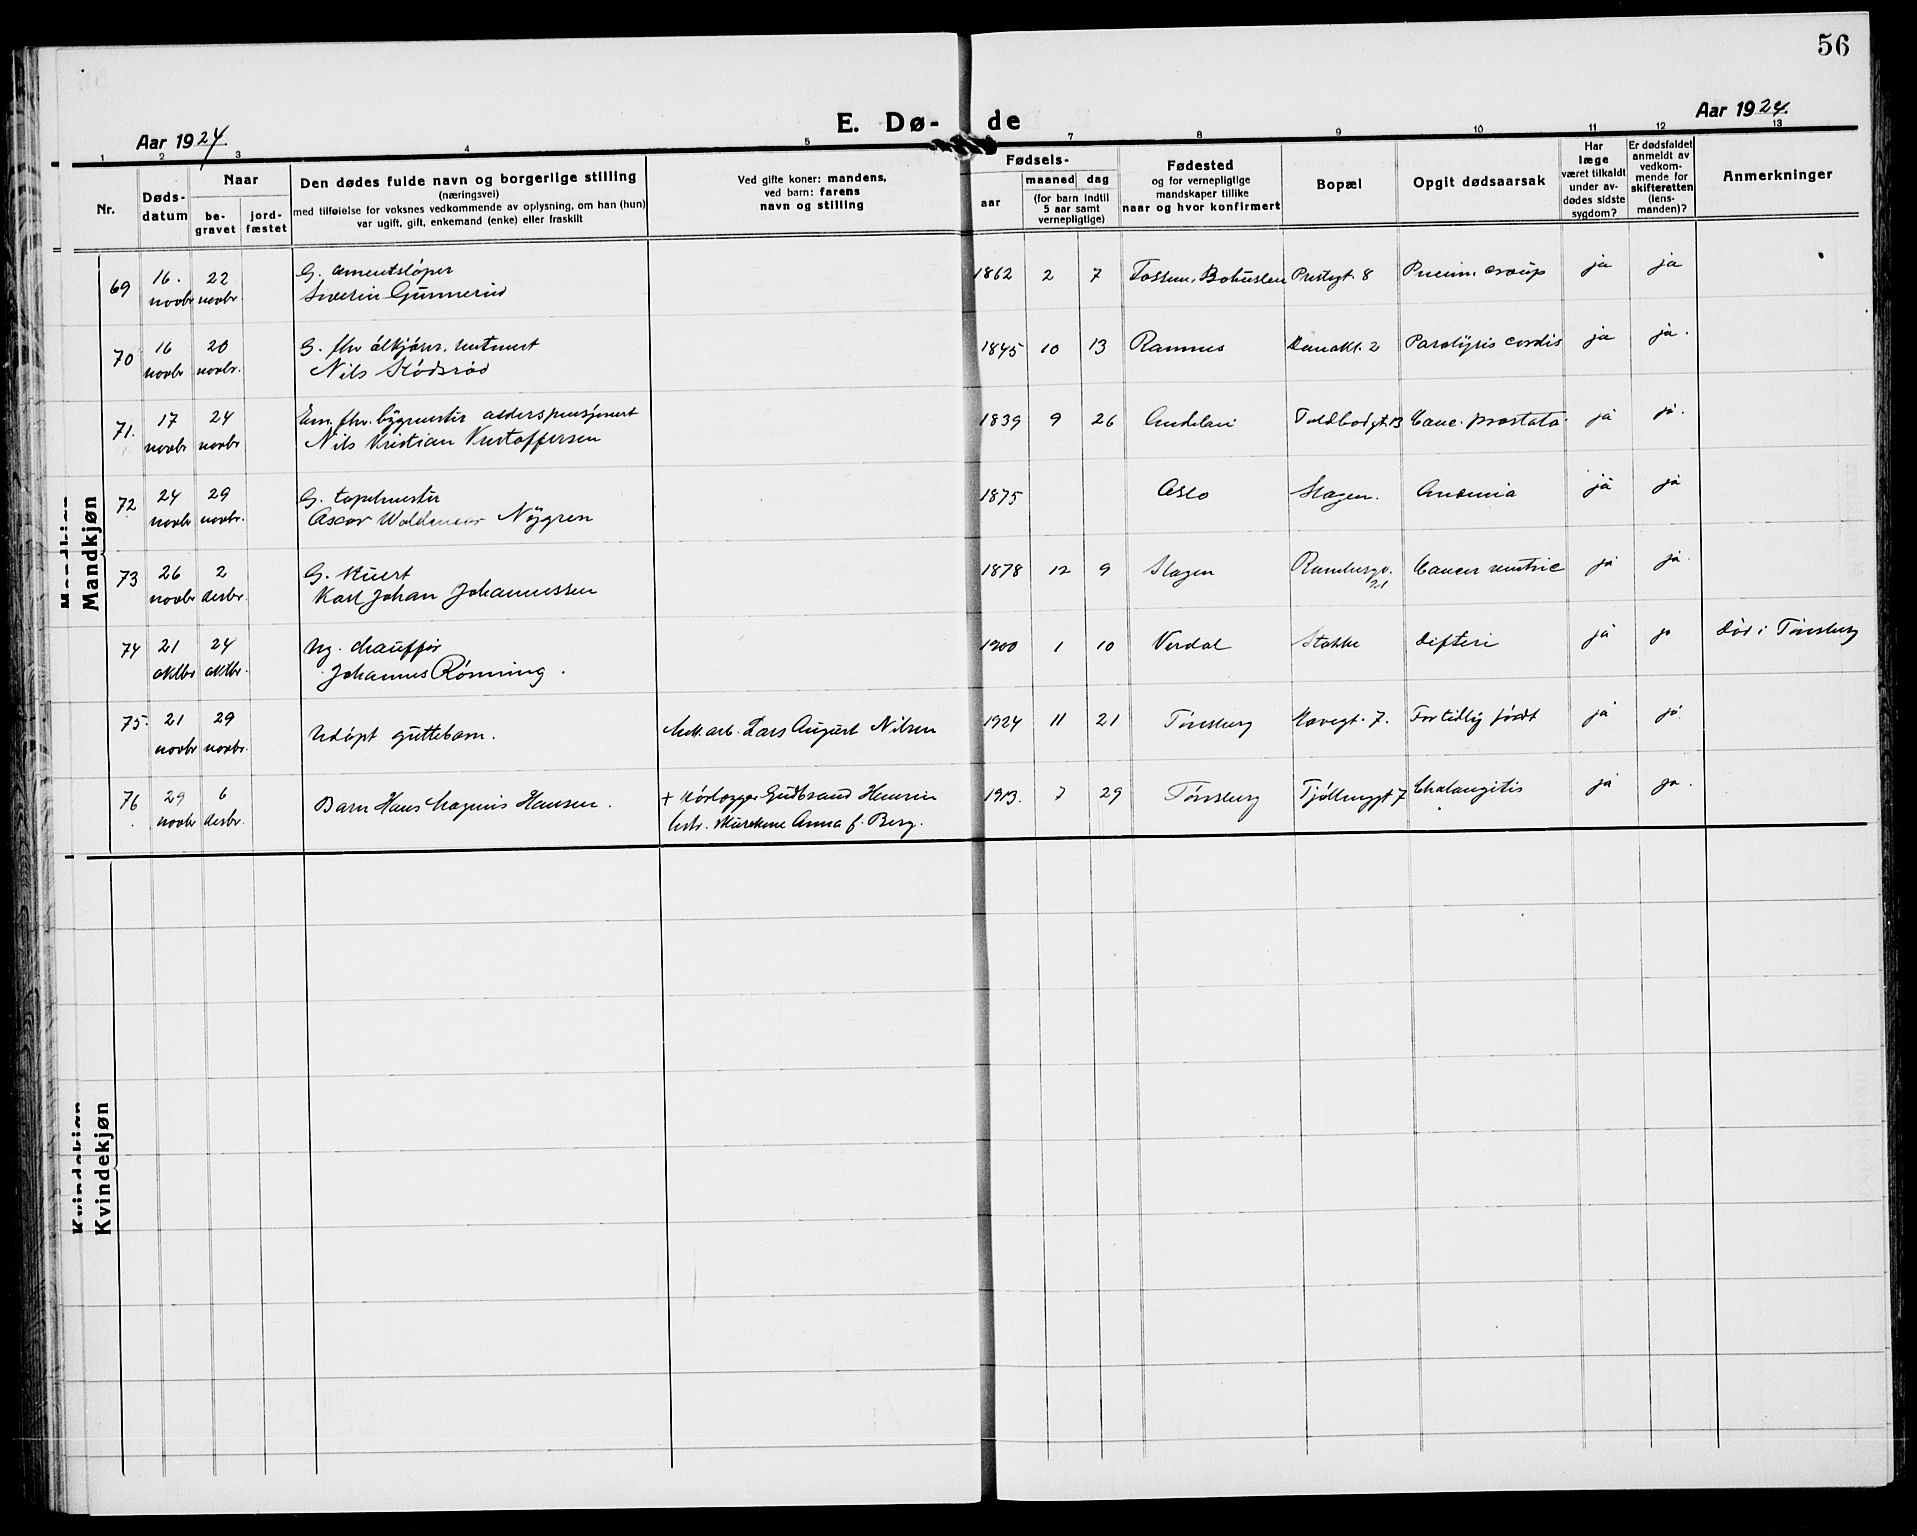 56
Aar 1924.
E. Dø-
de
Aar 1924.
1 2 3 4 5 7 8 9 10 11 12 13
Nr.
Døds-
datum
Naar
be-
gravet
jord-
fæstet
Den dødes fulde navn og borgerlige stilling
(næringsvei)
med tilføielse for voksnes vedkommende av oplysning, om han (hun)
var ugift, gift, enkemand (enke) eller fraskilt
Ved gifte koner: mandens,
ved barn: farens
navn og stilling
Fødsels-
aar
maaned dag
(for barn indtil
5 aar samt
vernepligtige)
Fødested
og for vernepligtige
mandskaper tillike
naar og hvor konfirmert
Bopæl
Opgit dødsaarsak
Har
læge
været tilkaldt
under av-
dødes sidste
sygdom?
Er dødsfaldet
anmeldt av
vedkom-
mende for
skifteretten
(lens-
manden)?
Anmerkninger
Mandkjøn
69 16. novbr 22 novbr. G.
Severin Gunnerød
1862 2 7 Fossum, Bohuslen Prestegt. 8 Pneum. croup ja ja
70 16 novbr 20 novbr. G. fhv
Nils Stødsrød
1845 10 13 Ramnes 2 Paralysis cordis ja ja.
71. 17 novbr 24 novbr Em. fhv. bygmester alderspensjonert
Nils Kristian Kristoffersen
1839 9 26 Toldbodgt. 13 Canc. prostata ja ja.
72 24 novbr 29 novbr. G. tapetmester
Oscar Waldemar Nygren
1875 Oslo Slagen. Anæmia ja ja
73 26 novbr 2 desbr. G.
Karl Johan Johannessen
1878 12 9 Slagen Rambergv. 21 Cancer ventric ja ja.
74 21 oktbr 24 oktbr. Ug. chauffør
Johannes Rønning.
1900 1 10 Verdal Stokke Difteri ja ja Død i Tønsberg
75. 21 novbr 29 novbr. Udøpt guttebarn. Mek. arb. Lars August Nilsen 1924 11 21 Tønsberg 7. For tidlig født ja ja.
76 29 novbr 6 desbr. Barn Hans Magnus Hansen. + Gudbrand Hansen
Anna f. Berg.
1913. 7 29 Tønsberg 7 Cholangitis ja ja.
Kvindekjøn